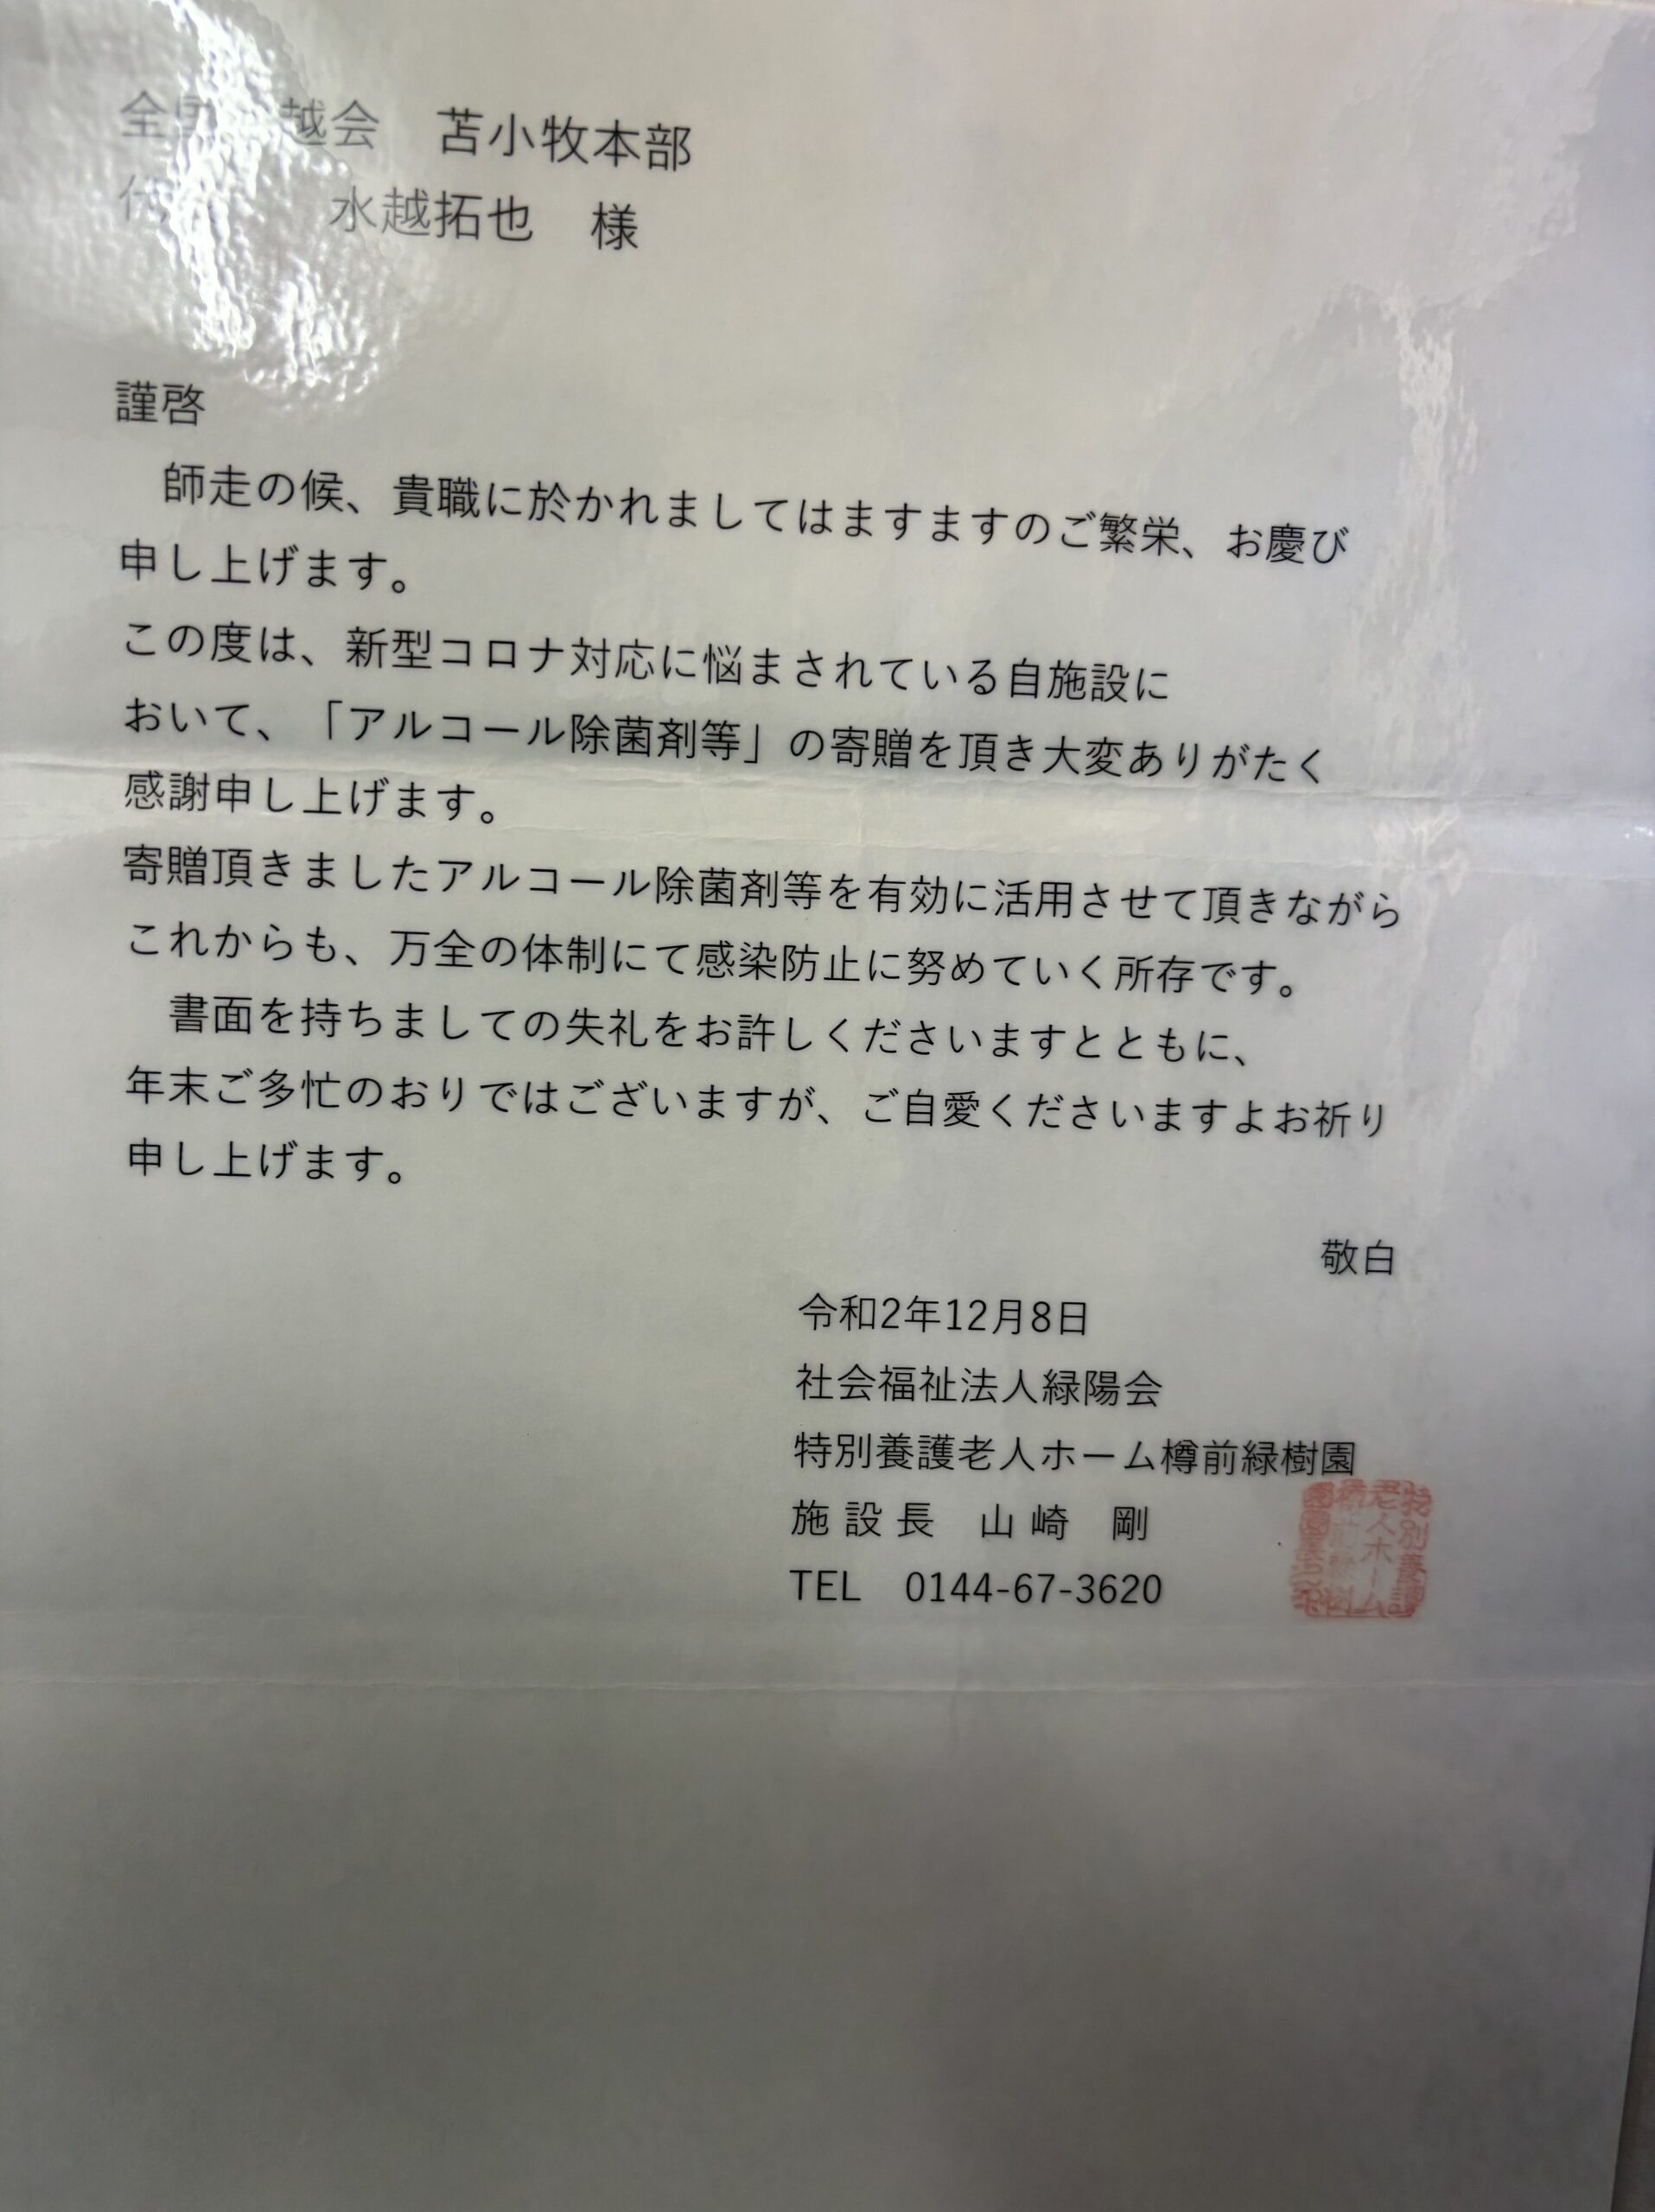 全国 越会　苫小牧本部
代 水越拓也　様
謹啓
師走の候、貴職に於かれましてはますますのご繁栄、お慶び
申し上げます。
この度は、新型コロナ対応に悩まされている自施設に
おいて、「アルコール除菌剤等」の寄贈を頂き大変ありがたく
感謝申し上げます。
寄贈頂きましたアルコール除菌剤等を有効に活用させて頂きながら
これからも、万全の体制にて感染防止に努めていく所存です。
書面を持ちましての失礼をお許しくださいますとともに、
年末ご多忙のおりではございますが、ご自愛くださいますよお祈り
申し上げます。
敬白
令和2年12月8日
社会福祉法人緑陽会
特別養護老人ホーム樽前緑樹園
施設長　山崎　剛
TEL　0144-67-3620
特別養護
老人ホーム